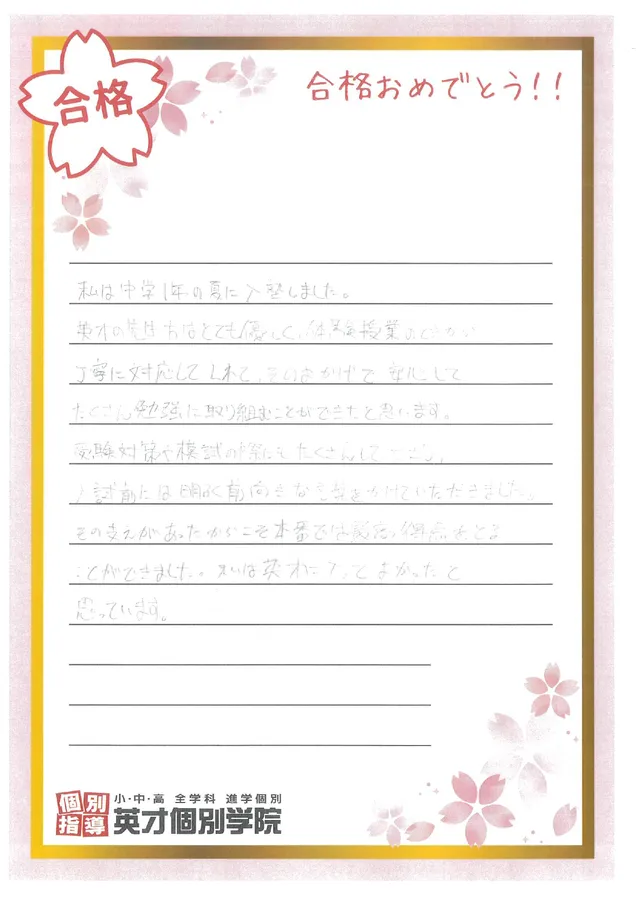 合格
合格おめでとう!!
私は中学1年の夏に入塾しました。
英才の先生方はとても優しく、体験授業の
丁寧に対応してくれて、そのおかげで安心して
たくさん勉強に取り組むことができたと思います。
受験対策や模試の たくさんして
試前には明るく前向きな言葉をかけていただきました。
その支えがあったからこそ本番では 得点をとる
ことができました。 は英才に入ってよかったと
思っています。
個別指導
小・中・高 全学科 進学個別
英才個別学院